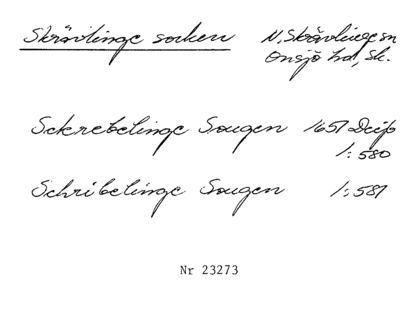 Skrävlinge socken N. Skrävlinge sn
Onsjö hd, Sk.
Schrebelinge Sougen 1651 DeiJb
1:580
Schribelinge Sougen 1:581
Nr 23273